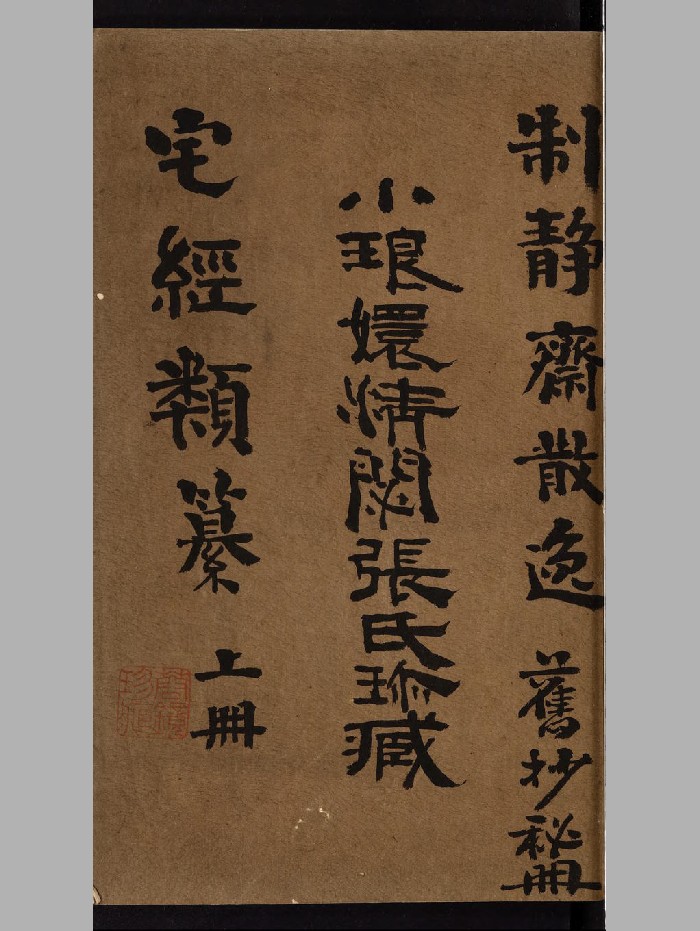 制静齋散逸 舊抄秘冊
小琅嬛清閟張氏珎藏
宅經類纂 上冊